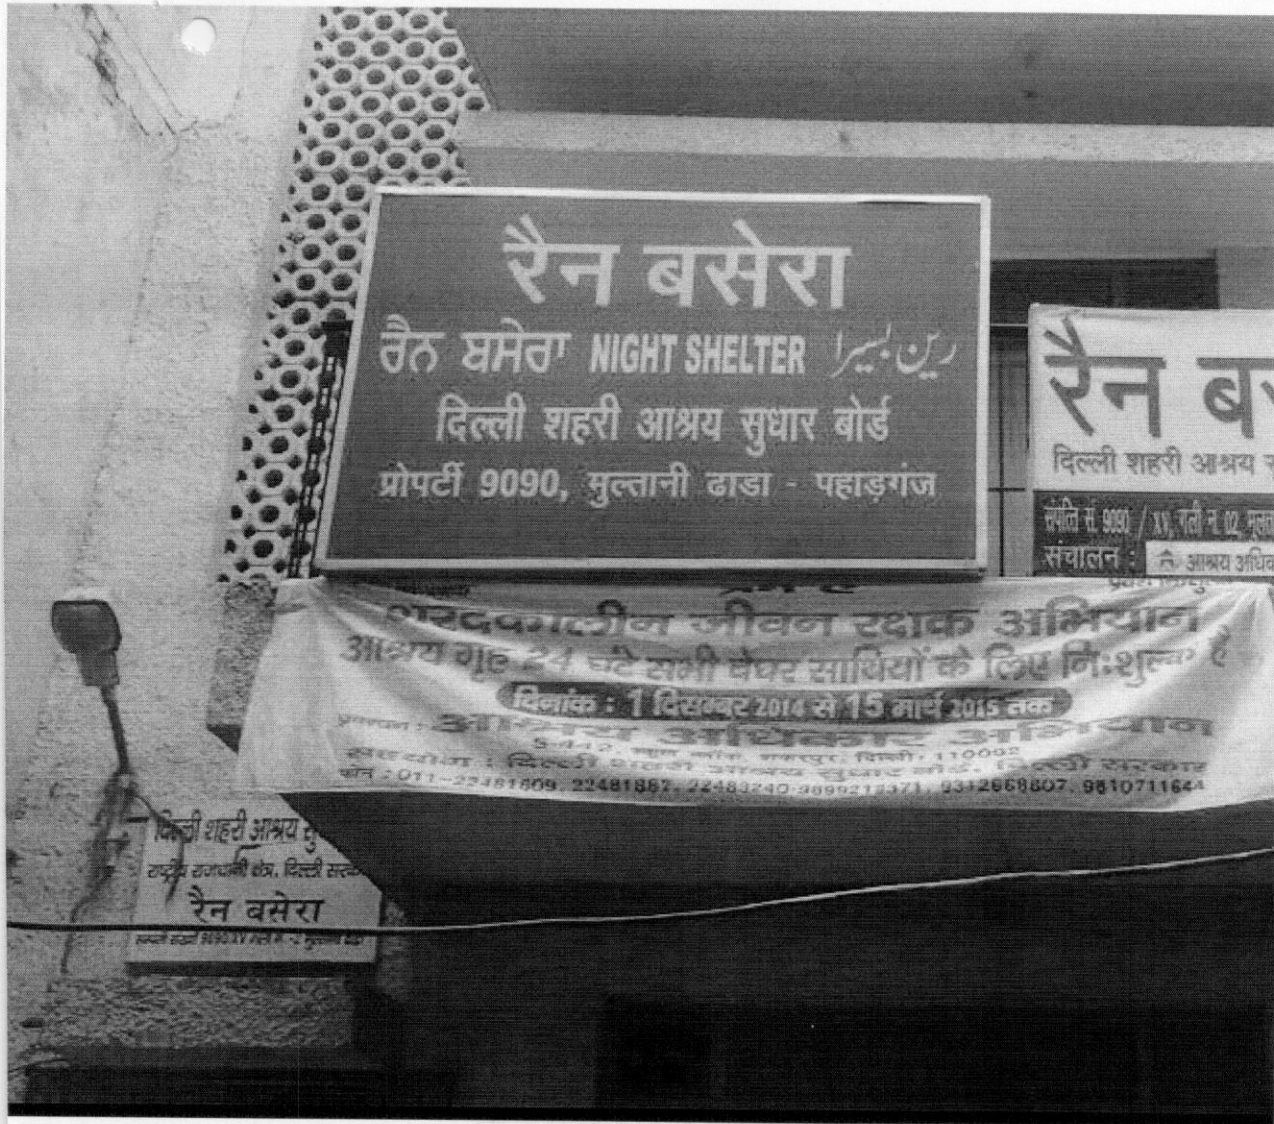 रैन बसेरा
ਰੈਨ ਬਸੇਰਾ NIGHT SHELTER رین بسیرا
दिल्ली शहरी आश्रय सुधार बोर्ड
प्रोपर्टी 9090, मुल्तानी ढाडा - पहाड़गंज
रैन ब
दिल्ली शहरी आश्रय
संपत्ति सं. 9090 / XV, गली न. 02,
संचालन : आश्रय अधिक
शरदकालीन जीवन रक्षक अभियान
आश्रय गृह 24 घंटे सभी बेघर साथियों के लिए नि:शुल्क हैं
दिनांक : 1 दिसम्बर 2014 से 15 मार्च 2015 तक
आश्रय अधिकार अभियान
S-442, स्कूल ब्लॉक, शकरपुर, दिल्ली, 110092
सहयोग : दिल्ली शहरी आश्रय सुधार बोर्ड, दिल्ली सरकार
फोन : 011-22481609, 22481887, 22483240
दिल्ली शहरी आश्रय सु
राष्ट्रीय राजधानी क्षेत्र, दिल्ली
रैन बसेरा